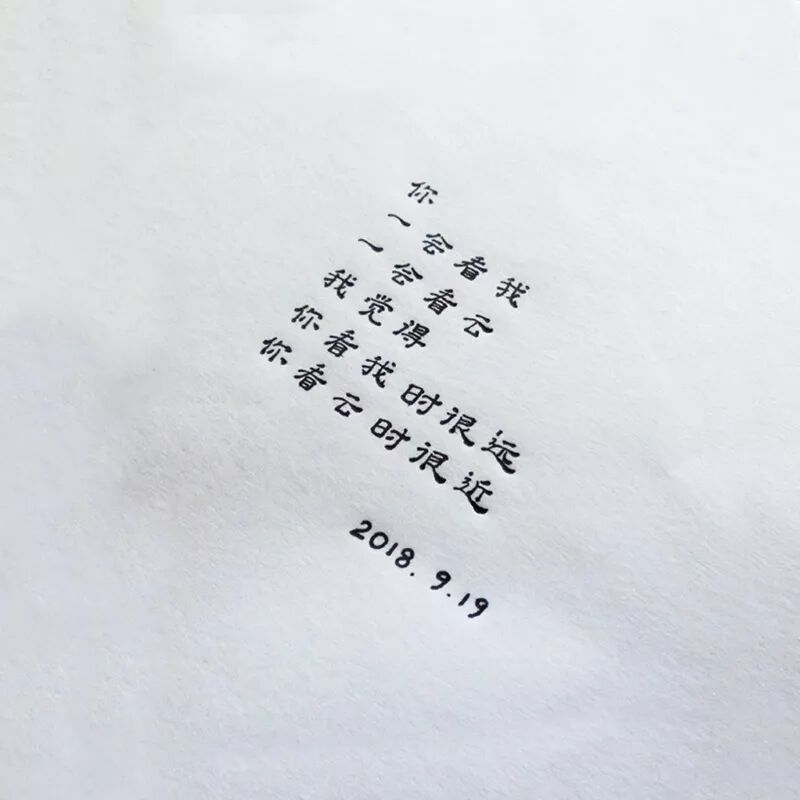 你
一会看我
一会看云
我觉得
你看我时很远
你看云时很近
2018.9.19